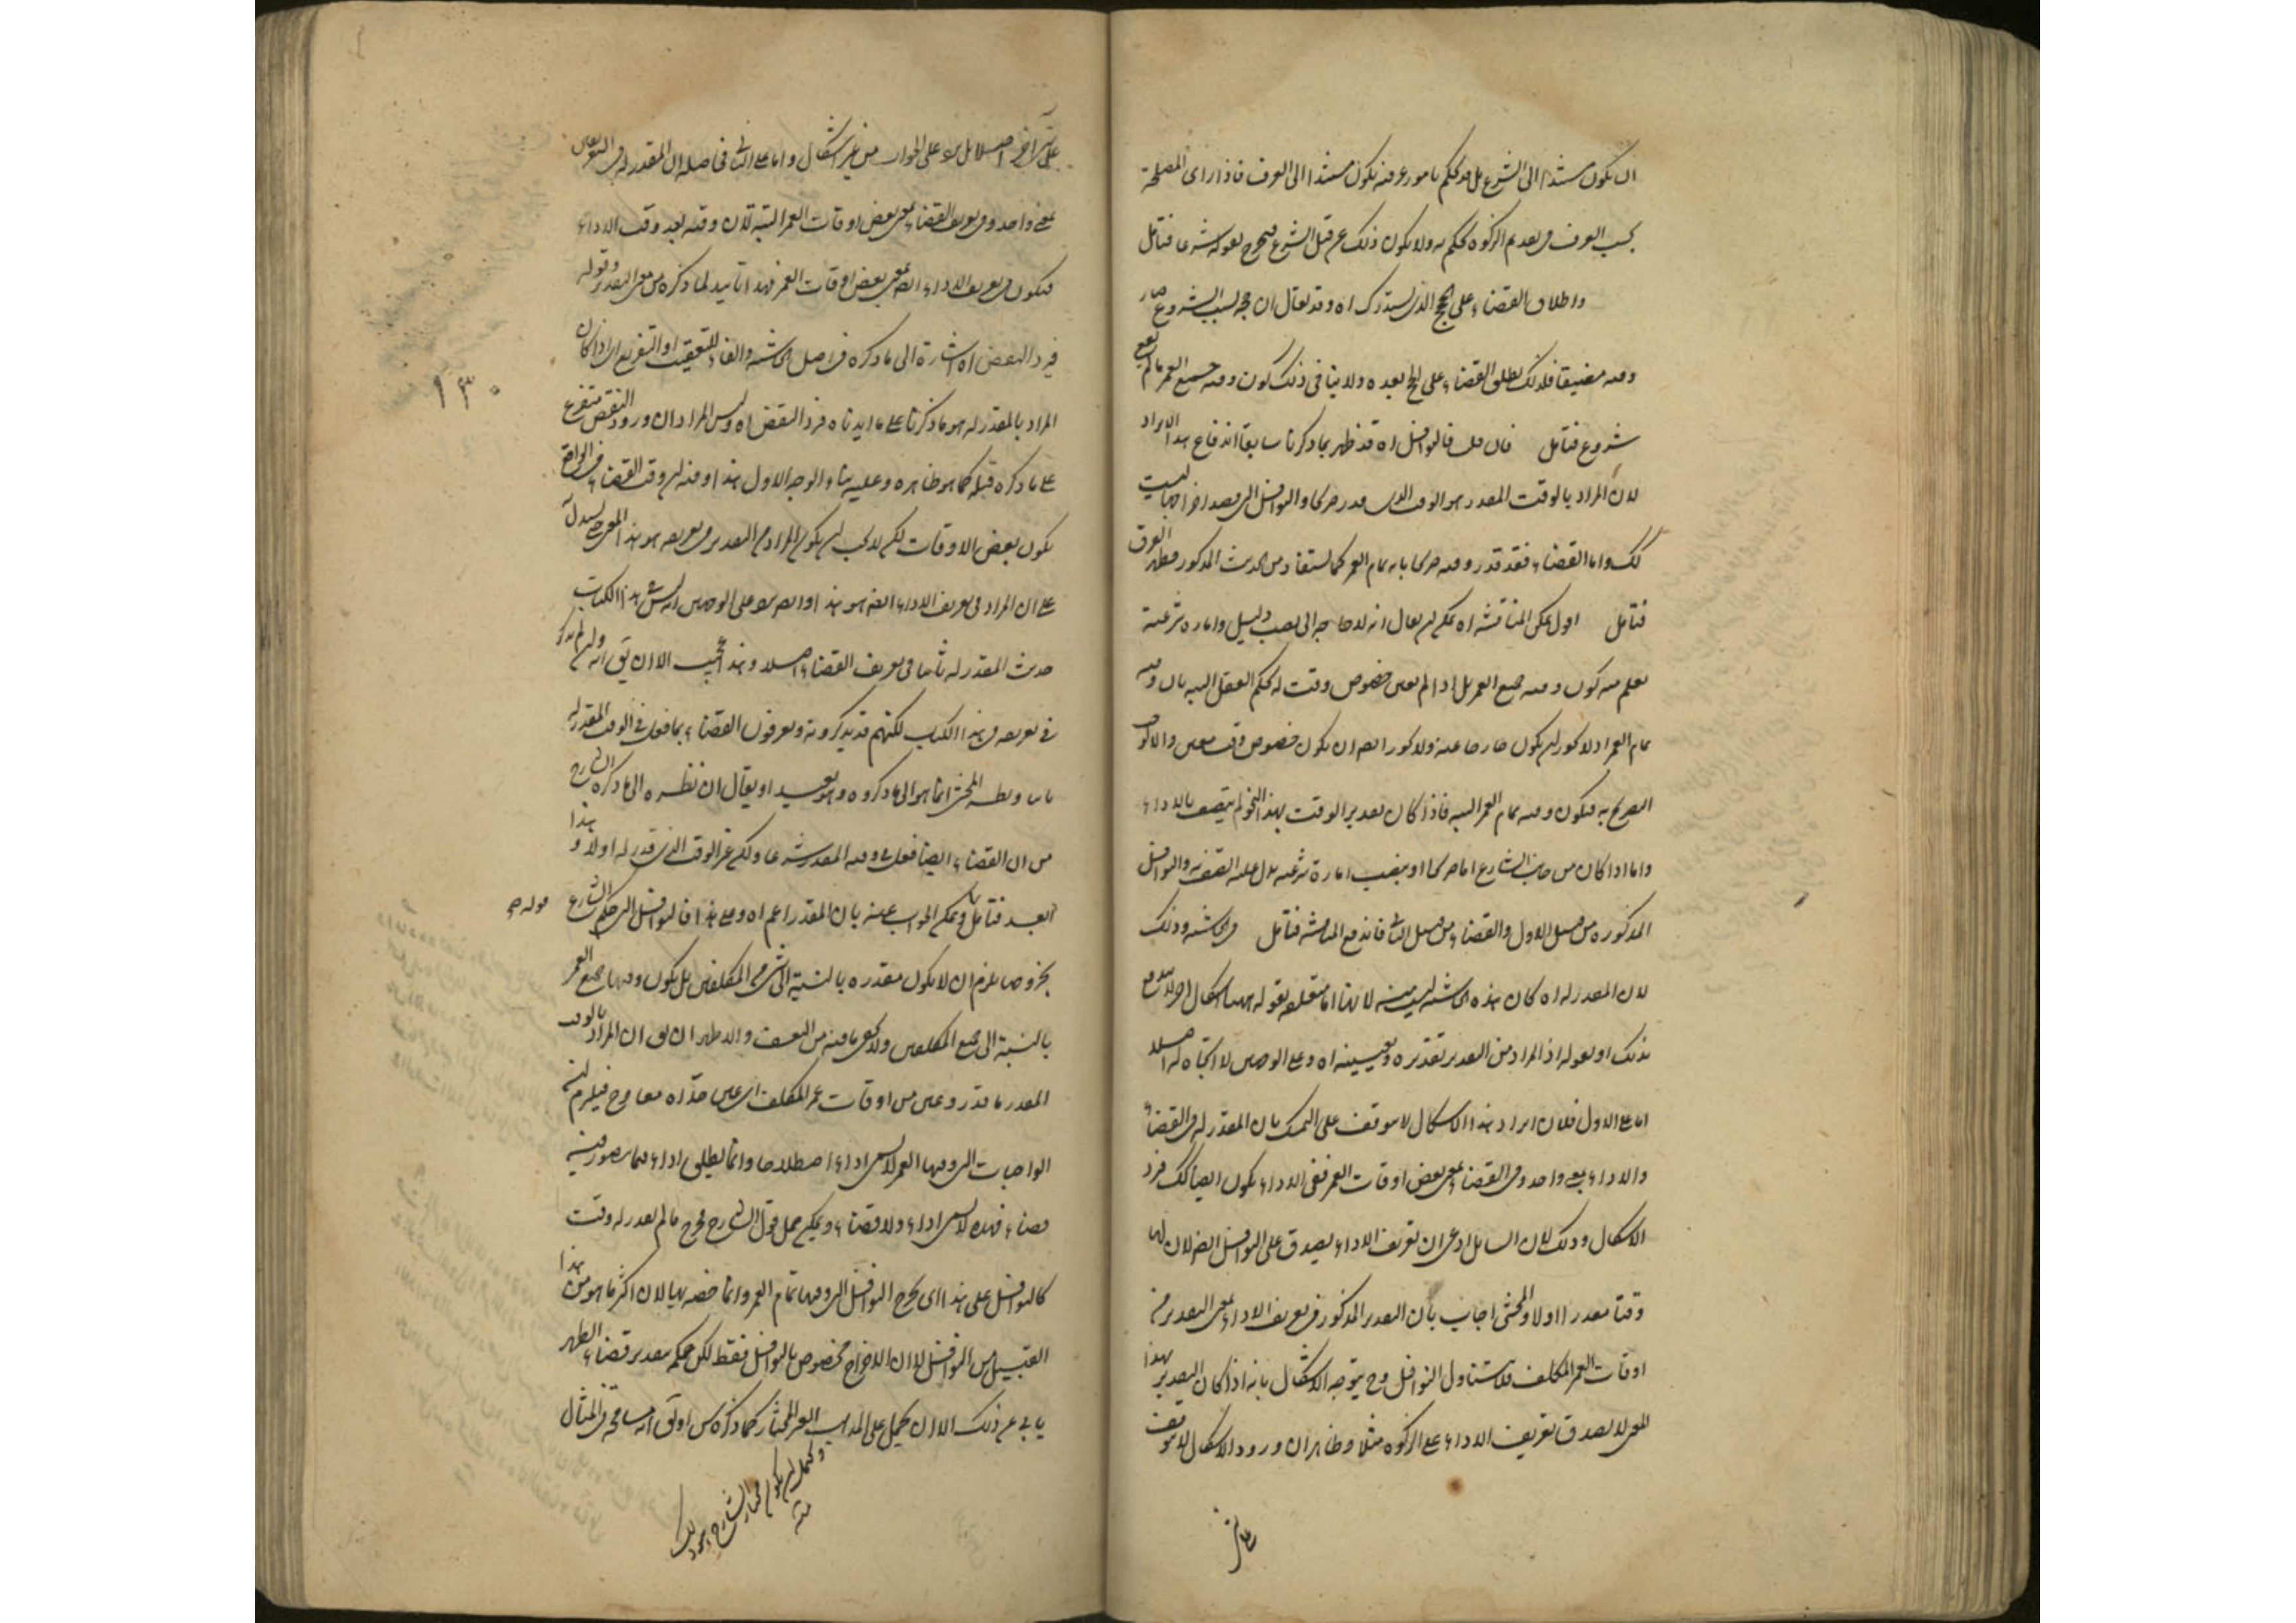 ان يكون مستندا الى الشرع بل قد يحكم بامور عرفية يكون مستندا الى العرف فاذا راى المصلحة
بحسب العرف في تقديم الزكوة يحكم به ولا يكون ذلك من قبل الشرع فيخرج بقوله شرعا فتامل
واطلاق القضاء على الحج الذي يستدرك اه وقد يقال ان حجه بسبب الشروع صار
وقته مضيقا فلذلك يطلق القضاء على الحج بعده ولا ينافي ذلك كون وقته جميع العمر ما لم يقع
شروع فتامل فان قلت فالنوافل اه قد ظهر بما ذكرنا سابقا اندفاع هذا الايراد
لان المراد بالوقت المقدر هو الوقت الذي قدر صريحا والنوافل التي قصد اخراجها ليست
كذلك واما القضاء فقد قدر وقته صريحا بانه تمام العمر كما يستفاد من الحديث المذكور فظهر الفرق
فتامل اقول يمكن المناقشة اه يمكن ان يقال انه لا حاجة الى نصب دليل وامارة شرعية
يعلم منه كون وقته جميع العمر بل اذا لم يعين خصوص وقت له يحكم العقل البتة بان وقته
تمام العمر اذ لا يجوز ان يكون خارجا عنه ولا يجوز ايضا ان يكون خصوص وقت معين والا لوجب
التصريح به فيكون وقته تمام العمر البتة فاذا كان تقدير الوقت بهذا النحو لم يتصف بالاداء
واما اذا كان من جانب الشارع اما صريحا او بنصب امارة شرعية يدل عليه اتصف به والنوافل
المذكورة من قبيل الاول والقضاء من قبيل الثاني فاندفع المناقشة فتامل في الحاشية وذلك
لان المقدر له اه كان هذه الحاشية ليست منه لانها اما متعلقة بقوله ههنا اشكال اخر لا يندفع
بذلك او بقوله اذ المراد من التقدير تقديره وتعيينه اه وعلى الوجهين لا اتجاه له اصلا
اما على الاول فلان ايراد هذا الاشكال لا يتوقف على التمسك بان المقدر له في القضاء
والاداء بمعنى واحد وفي القضاء بمعنى بعض اوقات العمر ففي الاداء يكون ايضا كذلك فيرد
الاشكال وذلك لان السائل ادعى ان تعريف الاداء يصدق على النوافل ايضا لان لها
وقتا مقدرا اولا والمحشي اجاب بان التقدير المذكور في تعريف الاداء بمعنى التقدير من
اوقات العمر المكلف فلا يتناول النوافل وح يتوجه الاشكال بانه اذا كان التقدير بهذا
المعنى لا يصدق تعريف الاداء على الزكوة مثلا وظاهر ان ورود الاشكال لا يتوقف
على شيء اخر اصلا بل يرد على الجواب من غير اشكال واما على الثاني فحاصله ان المقدر له في التعريفين
بمعنى واحد وفي تعريف القضاء بمعنى بعض اوقات العمر البتة لان وقته بعد وقت الاداء
فيكون في تعريف الاداء ايضا بمعنى بعض اوقات العمر فهذا تاييد لما ذكره من معنى التقدير وقوله
فيرد النقض اه اشارة الى ما ذكره في اصل الحاشية والفاء للتعقيب او التفريع اى اذا كان
المراد بالمقدر له هو ما ذكرنا على ما ايدناه فيرد النقض اه وليس المراد ان ورود النقض متفرع
على ما ذكره قبله كما هو ظاهره وعليه بناء الوجه الاول هذا وفيه ان وقت القضاء في الواقع
يكون بعض الاوقات لكن لا يجب ان يكون المراد من التقدير في تعريفه هو هذا المعنى حتى يستدل
على ان المراد في تعريف الاداء ايضا هو هذا وايضا يرد على الوجهين انه ليس في هذا الكتاب
حديث المقدر له ثانيا في تعريف القضاء اصلا وهذا عجيب الا ان يق انه وان لم يذكر
في تعريفه في هذا الكتاب لكنهم قد يذكرونه ويعرفون القضاء بما فعل في الوقت المقدر له
ثانيا ونظر المحشي انما هو الى ما ذكروه وهو بعيد او يقال ان نظره الى ما ذكره الشارح
من ان القضاء ايضا فعل في وقته المقدر شرعا ولكن غير الوقت الذي قدر له اولا وهذا
ابعد فتامل ويمكن الجواب عنه بان المقدر اعم اه وعلى هذا فالنوافل التي حكم الشارع
بخروجها يلزم ان لا يكون مقدرة بالنسبة الى شيء من المكلفين بل يكون وقتها جميع العمر
بالنسبة الى جميع المكلفين ولا يخفى ما فيه من التعسف والاظهر ان يق ان المراد بالوقت
المقدر ما قدر وعين من اوقات عمر المكلف اى عين حداه معا وح فيلزم ان
الواجبات التي وقتها العمر لا يسمى اداء اصطلاحا وانما يطلق اداء فيما يتصور فيه
قضاء فهذه لا يسمى اداء ولا قضاء ويمكن حمل قول الشارح فخرج ما لم يقدر له وقت
كالنوافل على هذا اى يخرج النوافل التي وقتها تمام العمر وانما خصه بها لان اكثر ما هو من هذا
القبيل من النوافل لا ان الاخراج مخصوص بالنوافل فقط لكن حكمه بتقدير قضاء الظهر
يابى عن ذلك الا ان يحمل على المذهب الغير المختار كما ذكره س او يق انه مسامحة في المثال
ويحتمل ان يكون مختار الشارح هو ذلك
منه
قوله ص
١٣٠
على شيء